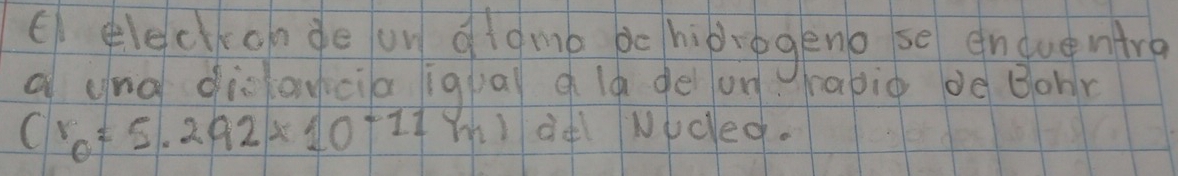 El electron de un átomo de hidrogeno se encuentra
a una distancia igual a la de un radio de Bohr
(r₀ = 5.292x10⁻¹¹ m) del Nucleo.